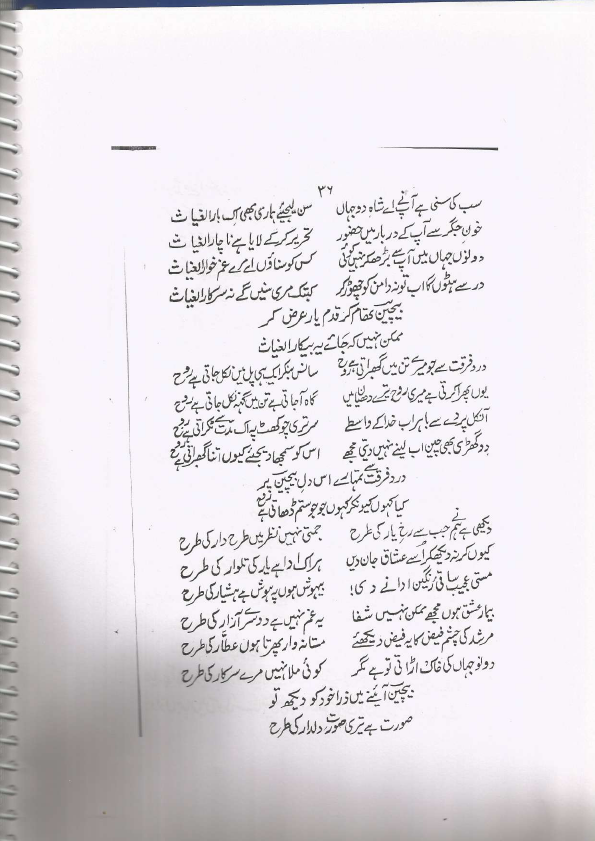 ۳۶
سب کی سنی ہے آپ نے اے شاہِ دو جہاں سن لیجئے ہماری بھی اِک بار الغیاث
خونِ جگر سے آپ کے دربار میں حضور تحریر کر کے لایا ہے ناچار الغیاث
دونوں جہاں میں آپ سے بڑھکر نہیں کوئی کس کو سناؤں اے مرے غم خوار الغیاث
در سے ہٹوں گا اب تو نہ دامن کو چھوڑ کر کبتک مری سنیں گے نہ سرکار الغیاث
بیچین تھام کر قدمِ یار عرض کر
ممکن نہیں کہ جائے یہ بیکار الغیاث
دردِ فرقت سے جو میرے تن میں گھبراتی ہے روح سانس بنکر ایک ہی پل میں نکل جاتی ہے روح
یوں پھرا کرتی ہے میری روح تیرے دھیان میں گاہ آجاتی ہے تن میں گہہ نکل جاتی ہے روح
آنکل پردے سے باہر اب خدا کے واسطے سر تری چوکھٹ پہ اک مدت سے ٹکراتی ہے روح
دو گھڑی بھی چین اب لینے نہیں دیتی مجھے اس کو سمجھا دیجئے کیوں اتنا گھبراتی ہے روح
دردِ فرقت سے تمہارے اس دلِ بیچین پر
کیا کہوں کیونکر کہوں جو جو ستم ڈھاتی ہے روح
دیکھی ہے ہم نے جب سے رخِ یار کی طرح جمتی نہیں نظر میں طرح دار کی طرح
کیوں کر نہ دیکھکر اُسے عشاق جان دیں ہر اک ادا ہے یار کی تلوار کی طرح
مستی عجیب ساقیِ رنگیں ادا نے دی! بیہوش ہوں پہ ہوش ہے ہشیار کی طرح
بیمارِ عشق ہوں مجھے ممکن نہیں شفا یہ غم نہیں ہے دوسرے آزار کی طرح
مرشد کی چشمِ فیض کا یہ فیض دیکھئے مستانہ وار پھرتا ہوں عطار کی طرح
دونو جہاں کی خاک اڑاتی تو ہے مگر کوئی ملا نہیں مرے سرکار کی طرح
بیچین آئینے میں ذرا خود کو دیکھ تو
صورت ہے تیری صورتِ دلدار کی طرح